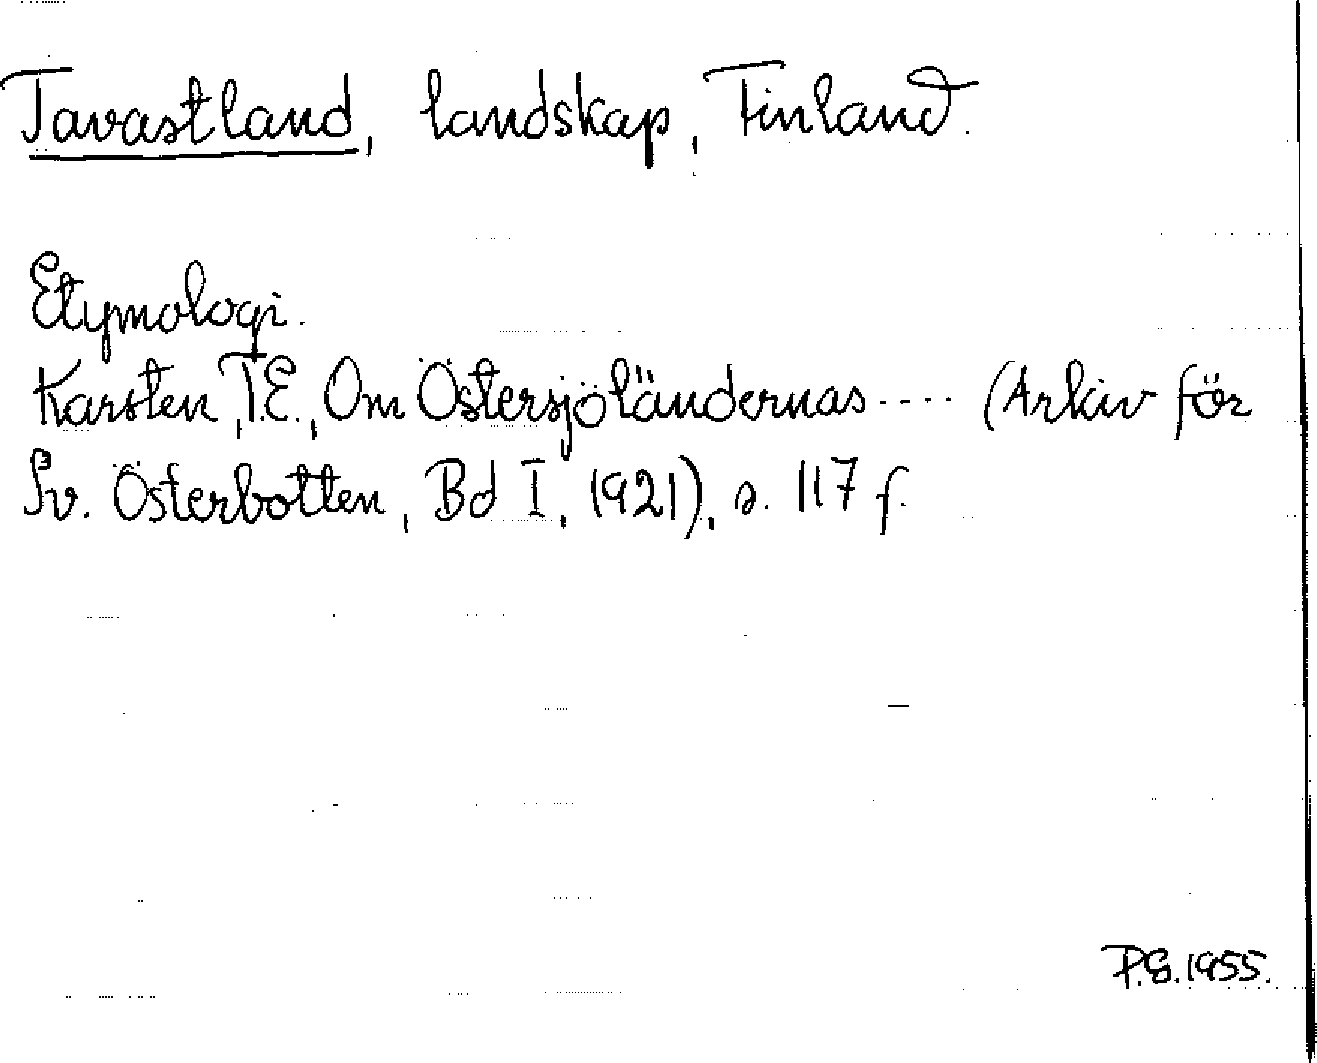 Tavastland, landskap, Finland.
Etymologi.
Karsten, T.E., Om Östersjöländernas .... (Arkiv för
Sv. Österbotten, Bd I, 1921), s. 117 f.
P.G.1955.